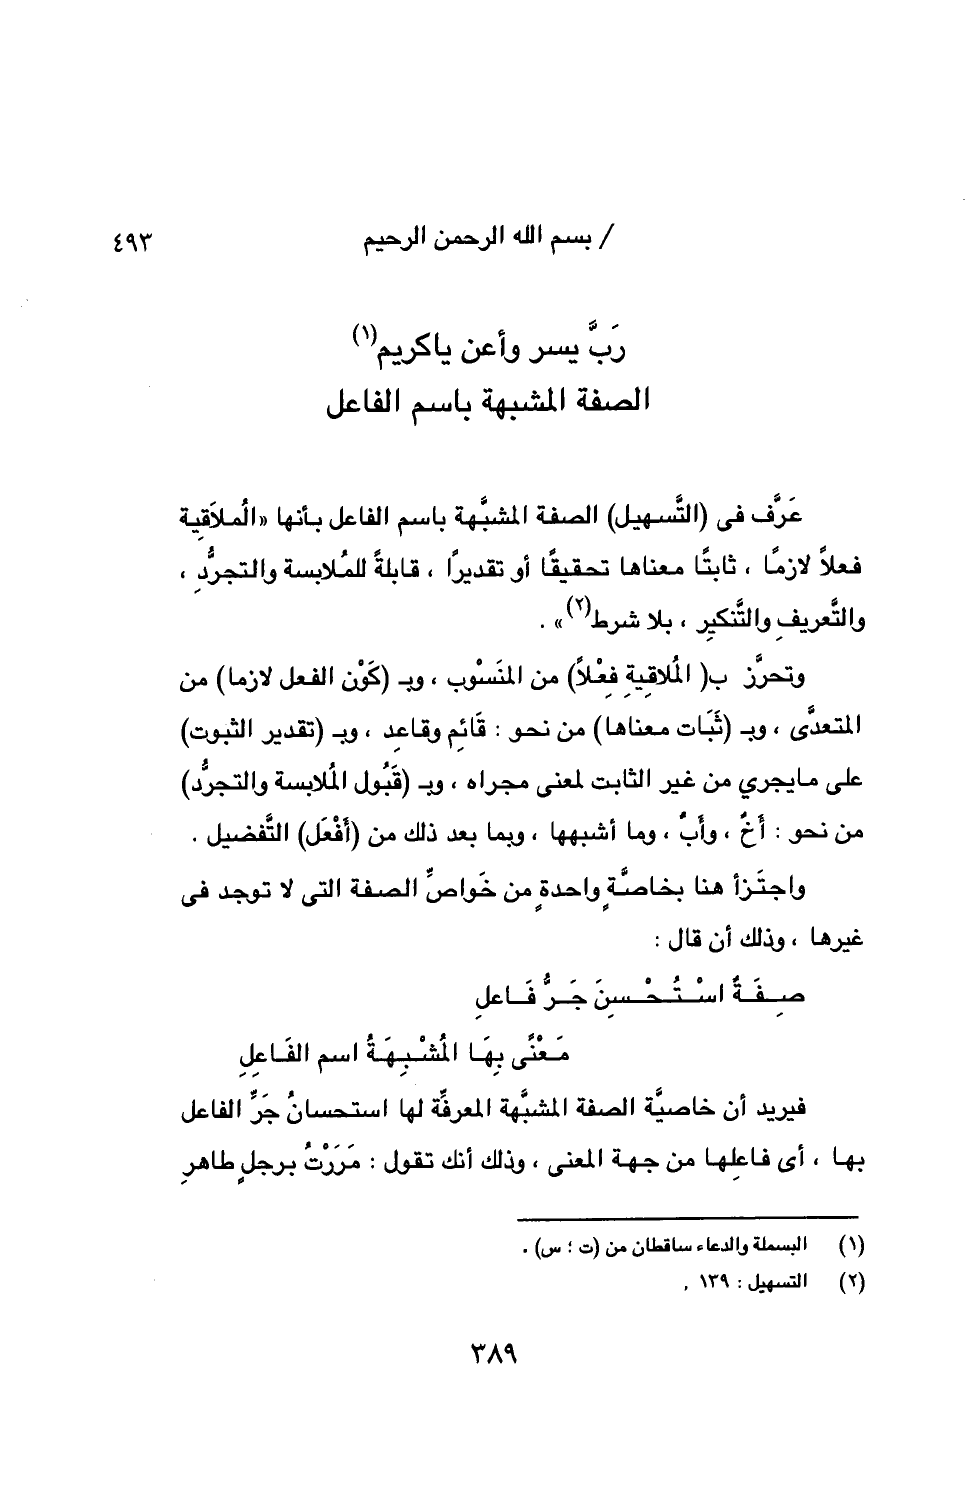 / بسم الله الرحمن الرحيم ٤٩٣
رَبَّ يسر وأعن ياكريم(١)
الصفة المشبهة باسم الفاعل
عَرَّف فى (التَّسهيل) الصفة المشبَّهة باسم الفاعل بأنها «المُلاَقِية
فعلاً لازمًا ، ثابتًا معناها تحقيقًا أو تقديرًا ، قابلةً للمُلابسة والتجرُّدِ ،
والتَّعريفِ والتَّنكيرِ ، بلا شرط(٢)» .
وتحرَّز ب( المُلاقِيةِ فِعْلاً) من المنَسْوب ، وبـ (كَوْن الفعل لازما) من
المتعدَّى ، وبـ (ثَبَات معناها) من نحو : قَائِمٍ وقاعدٍ ، وبـ (تقدير الثبوت)
على مايجري من غير الثابت لمعنى مجراه ، وبـ (قَبُول المُلابسة والتجرُّد)
من نحو : أَخٌ ، وأَبٌ ، وما أشبهها ، وبما بعد ذلك من (أَفْعَل) التَّفضيل .
واجتَزأ هنا بخاصَّةٍ واحدةٍ من خَواصِّ الصفة التى لا توجد فى
غيرها ، وذلك أن قال :
صِـفَـةٌ اسْـتُـحْـسِنَ جَـرُّ فَـاعلِ
مَـعْنًى بِهَـا المُشْـبِـهَةُ اسم الفَـاعِلِ
فيريد أن خاصيَّة الصفة المشبَّهة المعرفِّة لها استحسانُ جَرِّ الفاعل
بها ، أى فاعلِها من جهة المعنى ، وذلك أنك تقول : مَرَرْتُ برجلٍ طاهرِ
(١) البسملة والدعاء ساقطان من (ت ؛ س) .
(٢) التسهيل : ١٣٩ .
٣٨٩